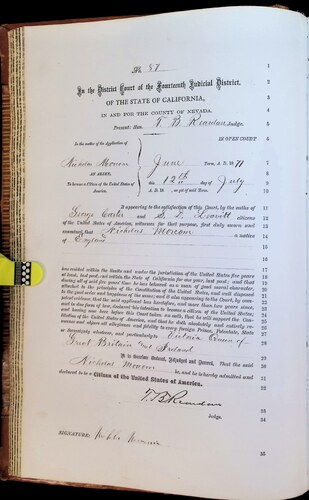 No. 87
In the District Court of the Fourteenth Judicial District,
OF THE STATE OF CALIFORNIA,
IN AND FOR THE COUNTY OF NEVADA.
Present: Hon. T. B. Reardan, Judge.
IN OPEN COURT
In the matter of the Application of
Nicholas
AN ALIEN,
To become a Citizen of the United States of America.
June Term, A. D. 1871
this 12th day of July
A. D. 18 , as yet of said Term.
It appearing to the satisfaction of this Court, by the oaths of
George and S. L. citizens
of the United States of America, witnesses for that purpose, first duly sworn and
examined, that Nicholas a native
of England
has resided within the limits and under the jurisdiction of the United States five years
at least, last past, and within the State of California for one year, last past; and that
during all of said five years' time he has behaved as a man of good moral character,
attached to the principles of the Constitution of the United States, and well disposed
to the good order and happiness of the same; and it also appearing to the Court, by com-
petent evidence, that the said applicant has heretofore, and more than two years since,
and in due form of law, declared his intention to become a citizen of the United States;
and having now here before this Court taken an oath, that he will support the Con-
stitution of the United States of America, and that he doth absolutely and entirely re-
nounce and abjure all allegiance and fidelity to every foreign Prince, Potentate, State
or Sovereignty whatever, and particularly to Victoria Queen of
Great Britain and Ireland
It is therefore Ordered, Adjudged and Decreed, That the said
Nicholas be, and he is hereby admitted and
declared to be a Citizen of the United States of America.
T. B. Reardan
Judge.
SIGNATURE:
1
2
3
4
5
6
7
8
9
10
11
12
13
14
15
16
17
18
19
20
21
22
23
24
25
26
27
28
29
30
31
32
33
34
35